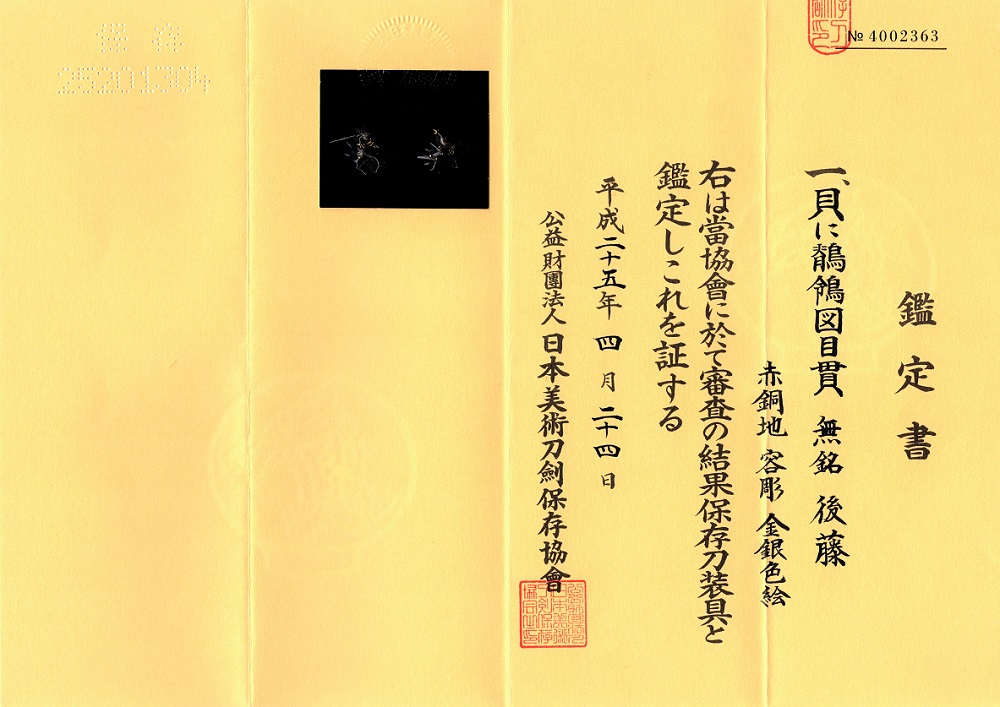 № 4002363
鑑定書
一、貝に鶺鴒図目貫 無銘 後藤
赤銅地 容彫 金銀色絵
右は當協會に於て審査の結果保存刀装具と
鑑定しこれを証する
平成二十五年 四月 二十四日
公益財團法人 日本美術刀劍保存協會
保存
25201304